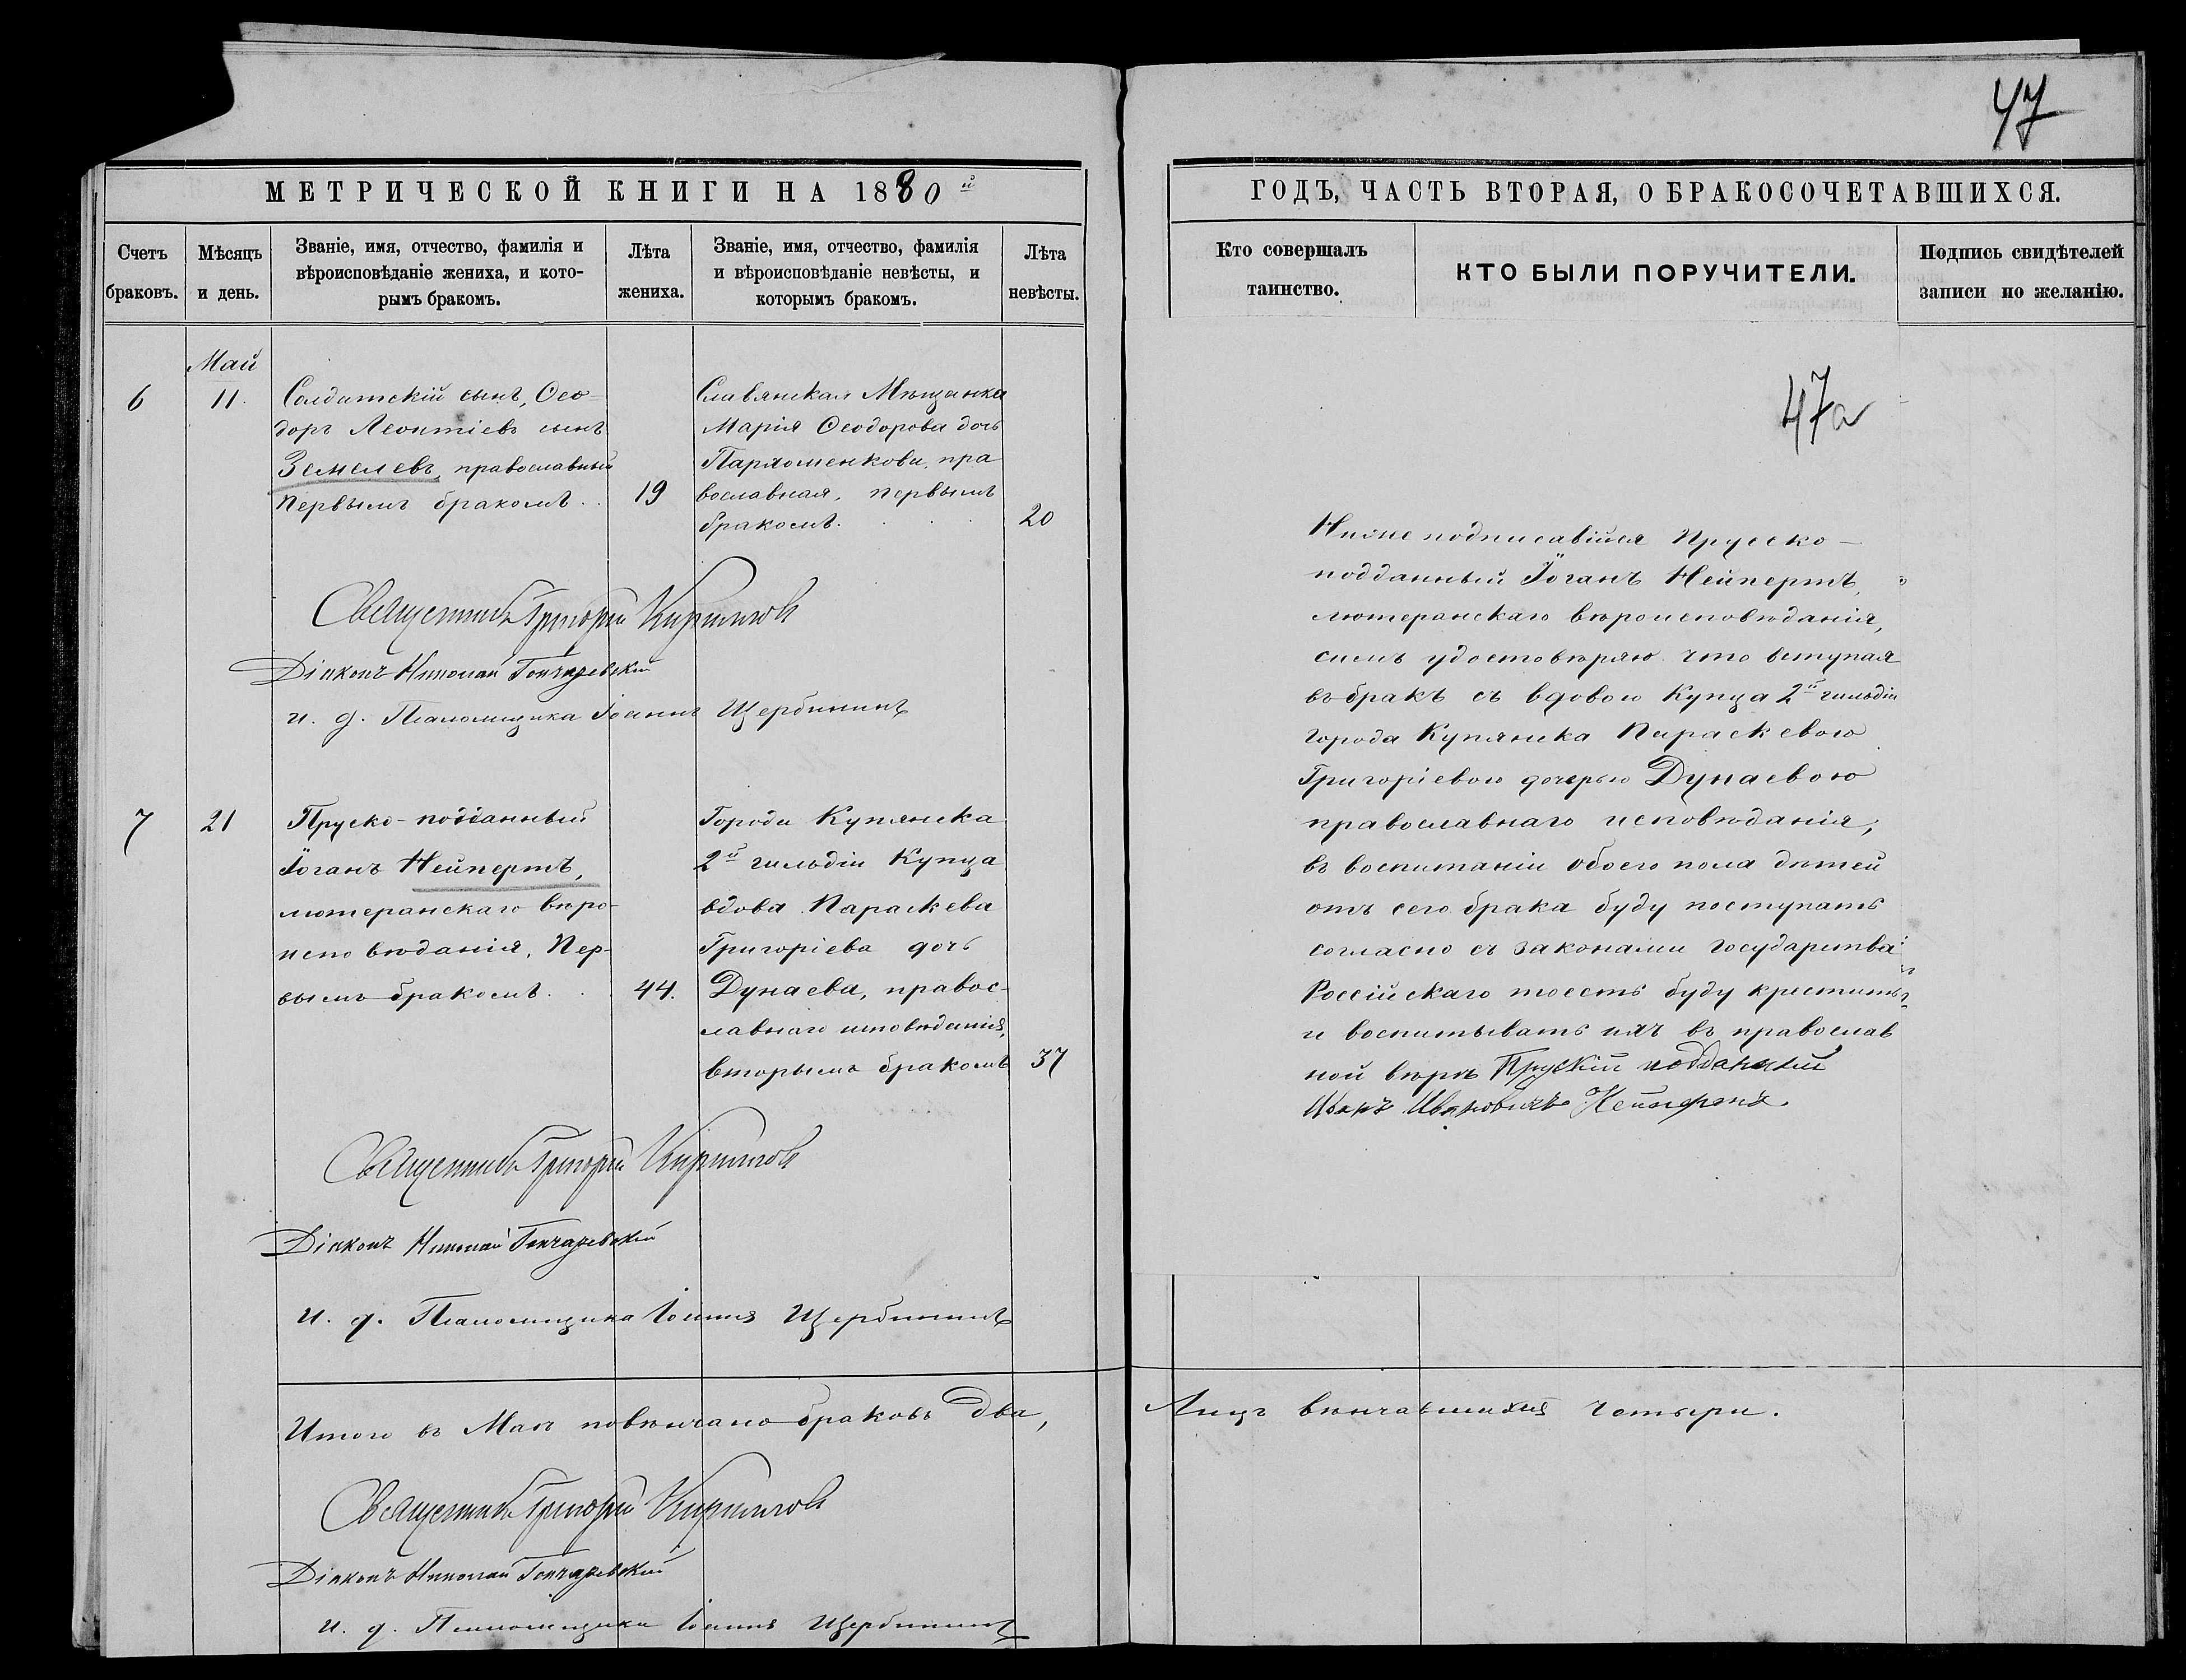 47
МЕТРИЧЕСКОЙ КНИГИ НА 1880й
Счетъ
браковъ.
Мѣсяцъ
и день.
Званіе, имя, отчество, фамилія и
вѣроисповѣданіе жениха, и кото-
рымъ бракомъ.
Лѣта
жениха.
Званіе, имя, отчество, фамилія
и вѣроисповѣданіе невѣсты, и
которымъ бракомъ.
Лѣта
невѣсты.
6
Май
11.
Солдатскій сынъ, Ѳео-
доръ Леонтіевъ сынъ
Земелевъ, православный
первымъ бракомъ. .
19
Славянская Мѣщанка
Марія Ѳеодорова дочь
Пархоменкова, пра
вославная, первымъ
бракомъ. . .
20
Священникъ Григорій Кириллов
Діаконъ Николай Гончаревскій
и. д. Псаломщика Іоаннъ Щербининъ
7
21
Пруско-подданный
Іоганъ Нейпертъ,
лютеранскаго вѣро-
исповѣданія, Пер-
вымъ бракомъ. .
44.
Города Купянска
2й гильдіи Купца
вдова Параскева
Григоріева дочь
Дунаева, правос-
лавнаго исповѣданія,
вторымъ бракомъ
37
Священникъ Григорій Кириллов
Діаконъ Николай Гончаревскій
и. д. Псаломщика Іоаннъ Щербининъ
Итого въ Маѣ повѣнчано браковъ два,
Священникъ Григорій Кириллов
Діаконъ Николай Гончаревскій
и. д. Псаломщика Іоаннъ Щербининъ
ГОДЪ, ЧАСТЬ ВТОРАЯ, О БРАКОСОЧЕТАВШИХСЯ.
Кто совершалъ
таинство.
КТО БЫЛИ ПОРУЧИТЕЛИ.
Подпись свидѣтелей
записи по желанію.
47а
Ниже подписавійся Прусско-
подданный Іоганъ Нейпертъ,
лютеранскаго вѣроисповѣданія,
симъ удостовѣряю что вступая
въ бракъ съ вдовою Купца 2й гильдіи
города Купянска Параскевою
Григоріевою дочерью Дунаевою
православнаго исповѣданія;
въ воспитаніи обоего пола дѣтей
отъ сего брака буду поступать
согласно съ законами государства
Россійскаго тоесть буду крестить
и воспитывать ихъ въ православ
ной вѣрѣ Прускій подданный
Иванъ Ивановичъ Нейпертъ
Лицъ вѣнчавшихся четыри.